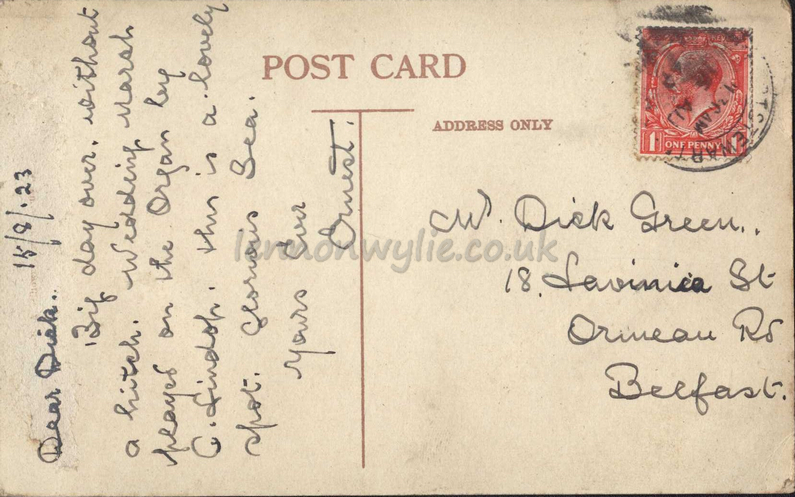 15/8/.23
Dear Dick.
Big day over, without
a hitch. Wedding March
played on the Organ by
C. Lindop. this is a lovely
spot. Glorious Sea.
Yours Ever
Ernest.
POST CARD
ADDRESS ONLY
ONE PENNY
Mr. Dick Green..
18, Lavinia St
Ormeau Rd
Belfast.
lennonwylie.co.uk